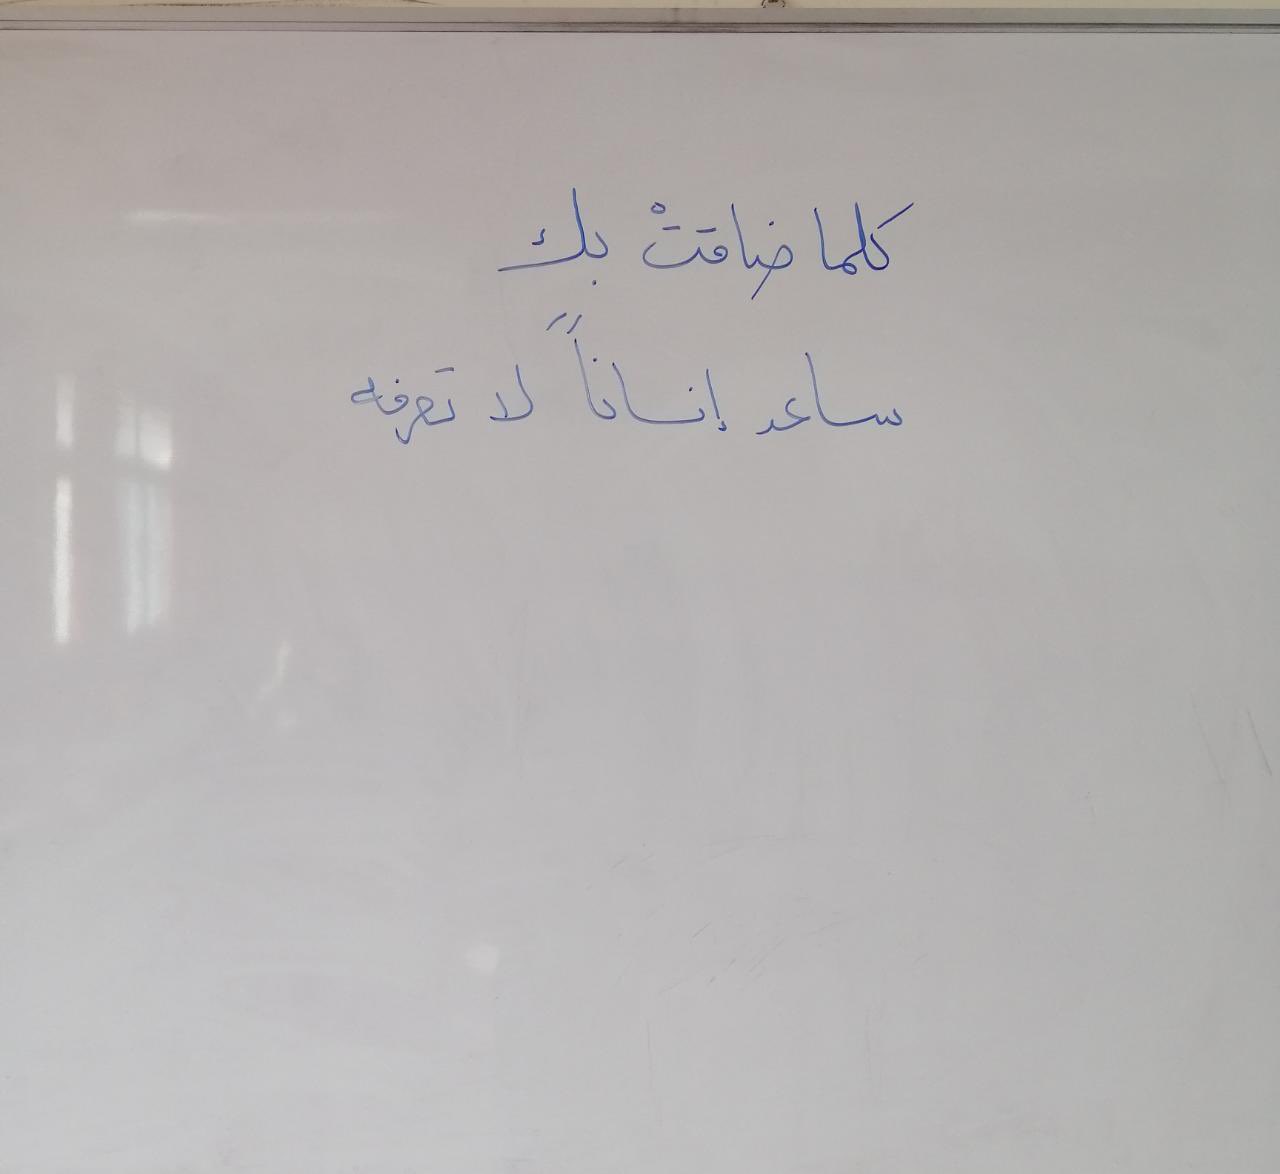 كلما ضاقتْ بك
ساعد إنساناً لا تعرفه